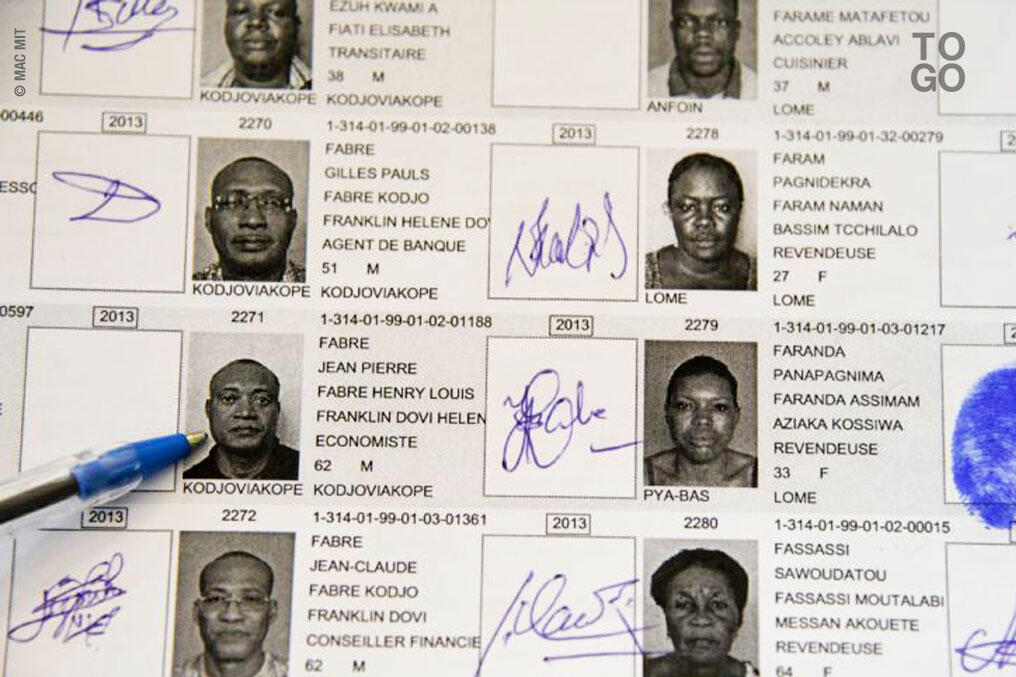 © MAC MIT
TO
GO
EZUH KWAMI A
FIATI ELISABETH
TRANSITAIRE
38 M
KODJOVIAKOPE
KODJOVIAKOPE
FARAME MATAFETOU
ACCOLEY ABLAVI
CUISINIER
37 M
ANFOIN
LOME
00446
2013
2270
1-314-01-99-01-02-00138
FABRE
GILLES PAULS
FABRE KODJO
FRANKLIN HELENE DO'
AGENT DE BANQUE
51 M
KODJOVIAKOPE
KODJOVIAKOPE
ESSO
2013
2278
1-314-01-99-01-32-00279
FARAM
PAGNIDEKRA
FARAM NAMAN
BASSIM TCCHILALO
REVENDEUSE
27 F
LOME
LOME
2
0597
2013
2271
1-314-01-99-01-02-01188
FABRE
JEAN PIERRE
FABRE HENRY LOUIS
FRANKLIN DOVI HELEN
ECONOMISTE
62 M
KODJOVIAKOPE
KODJOVIAKOPE
2013
2279
1-314-01-99-01-03-01217
FARANDA
PANAPAGNIMA
FARANDA ASSIMAM
AZIAKA KOSSIWA
REVENDEUSE
33 F
PYA-BAS
LOME
2
2013
2272
1-314-01-99-01-03-01361
FABRE
JEAN-CLAUDE
FABRE KODJO
FRANKLIN DOVI
CONSEILLER FINANCIE
62 M
2013
2280
1-314-01-99-01-02-00015
FASSASSI
SAWOUDATOU
FASSASSI MOUTALABI
MESSAN AKOUETE
REVENDEUSE
64 F